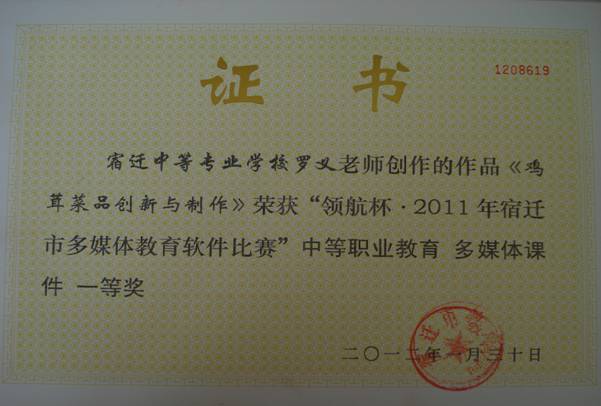 证书
1208619
宿迁中等专业学校罗义老师创作的作品《鸡
茸菜品创新与制作》荣获“领航杯·2011年宿迁
市多媒体教育软件比赛”中等职业教育 多媒体课
件 一等奖
二〇一二年一月三十日